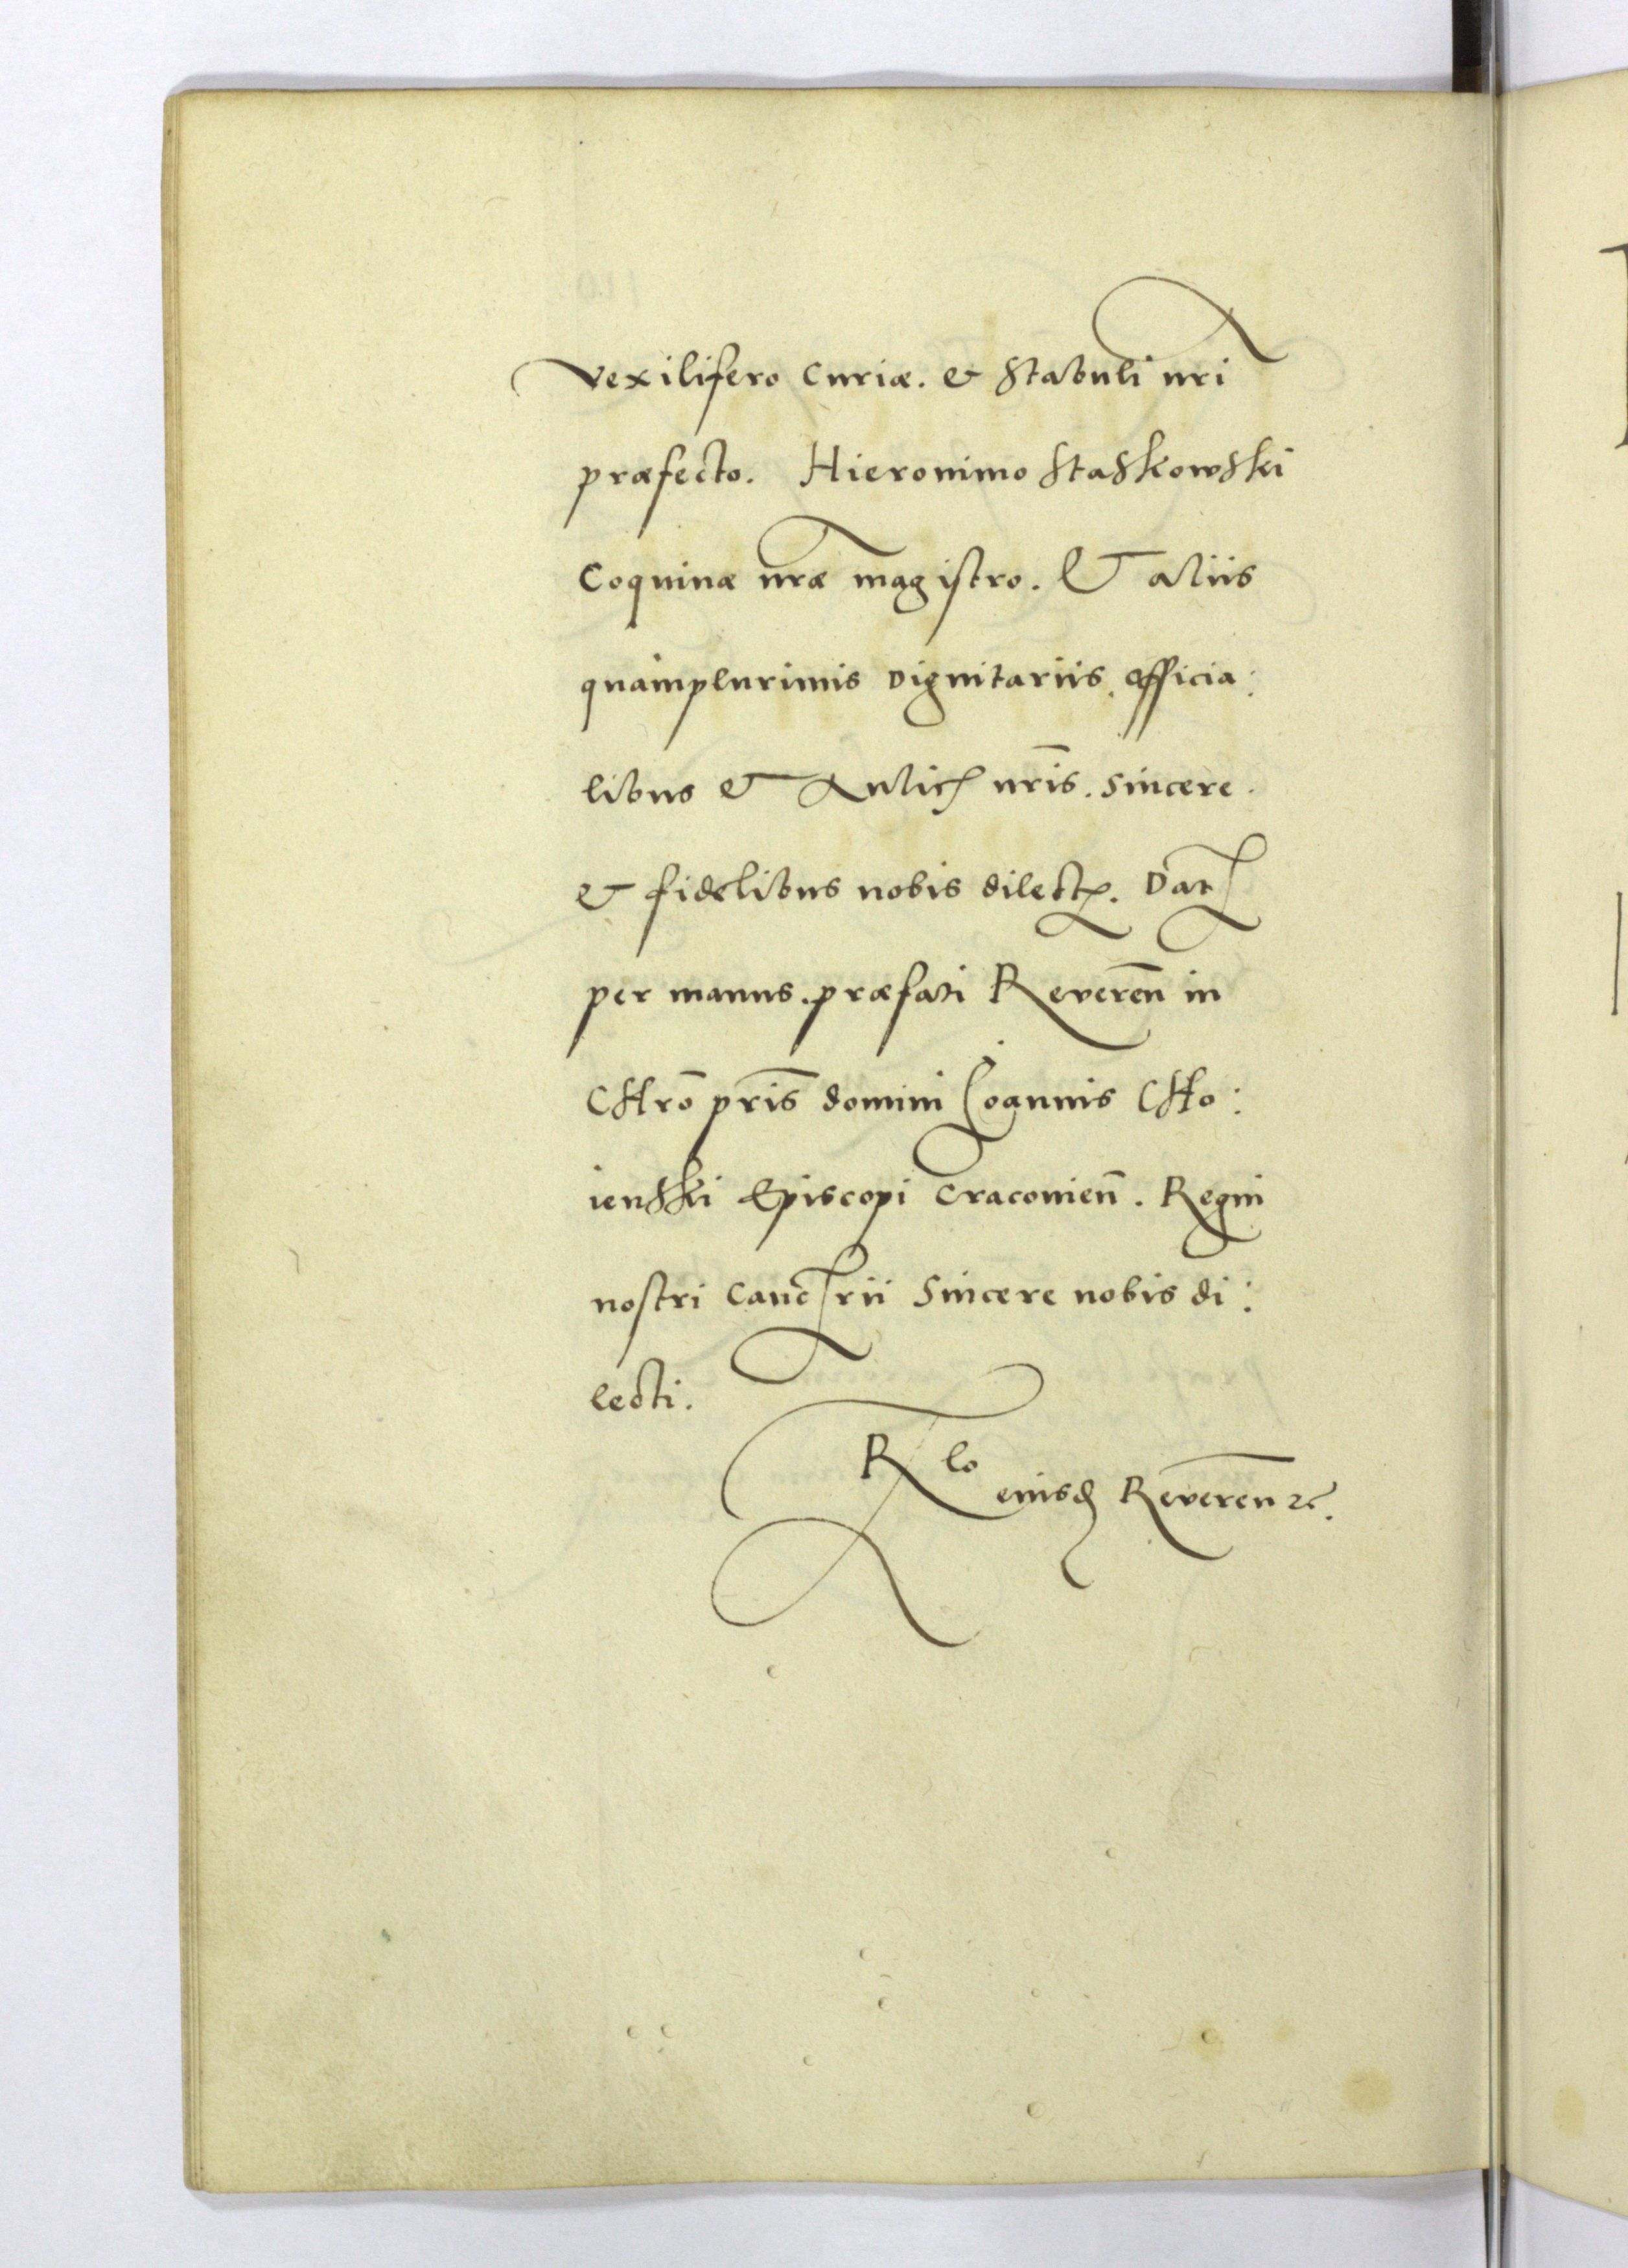 vexilifero curiæ. & stabuli nr̃i
præfecto. Hieronimo Staskowski
Coquinæ nr̃æ magistro. & aliis
quamplurimis Dignitariis, officia:
libus & Aulicꝭ nr̃is. sincere
& fidelibus nobis dilectꝭ. Datꝭ
per manus præfati Reveren̄ in
CHrõ pr̃is domini Ioannis CHo:
ienski Episcopi Cracovien̄. Regni
nostri Cancꝭrii Sincere nobis di:
lecti.
R lo
eiusd Reveren̄ ⁊c.